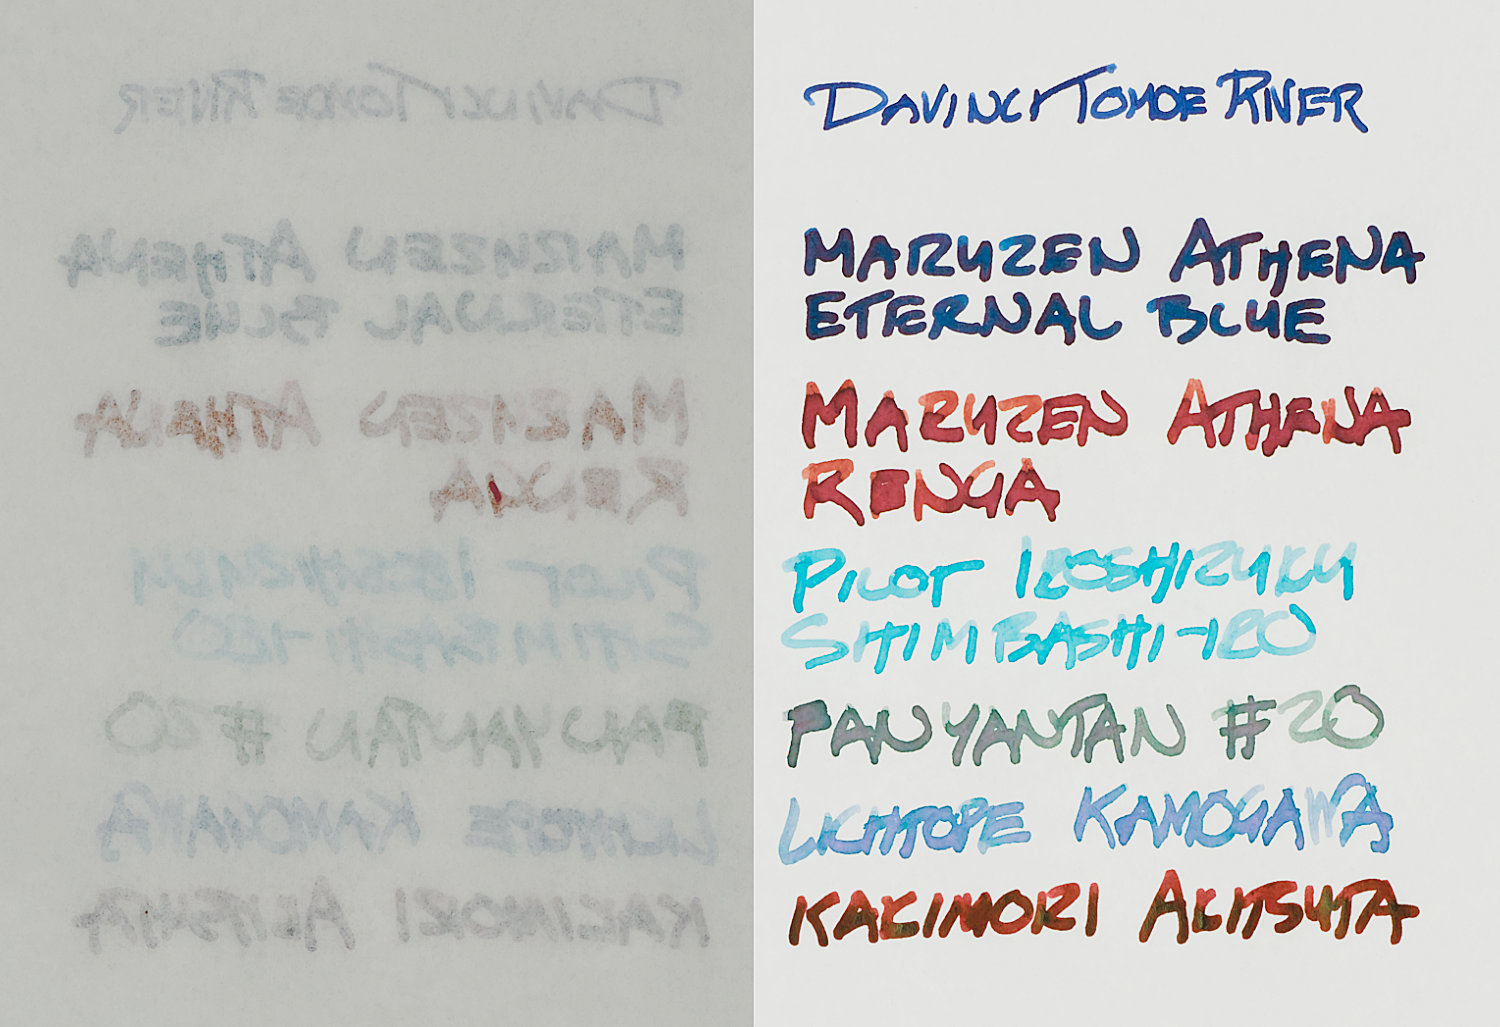 DAVINCI TOMOE RIVER
MARUZEN ATHENA
ETERNAL BLUE
MARUZEN ATHENA
RENGA
PILOT IROSHIZUKU
SHIMBASHI-IRO
PANYANTAN #20
LICHTOPE KAMOGAWA
KAKIMORI AKITSUTA